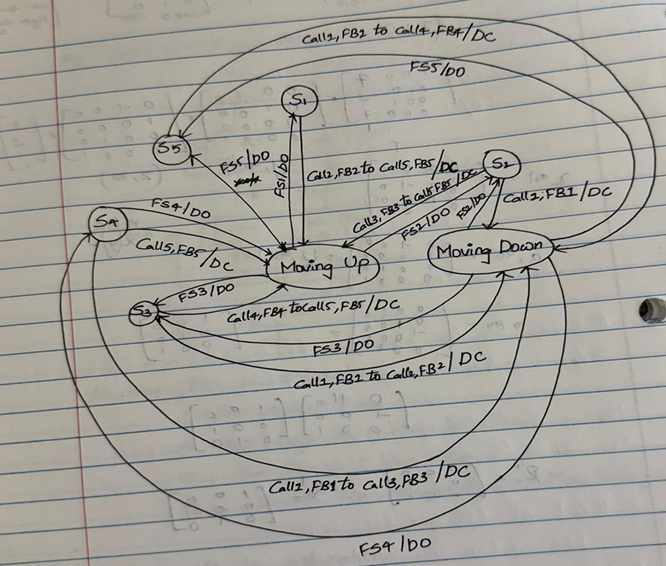 Call1, FB2 to Call4, FB4/DC
FS5/DO
S1
S5
FS5/DO
FS1/DO
Call2, FB2 to Call5, FB5/DC
S2
Call3, FB3 to Call5 FB5/DC
FS2/DO
FS2/DO
Call1, FB1/DC
FS4/DO
S4
Call5, FB5/DC
Moving Up
Moving Down
FS3/DO
S3
Call4, FB4 to Call5, FB5/DC
FS3/DO
Call1, FB2 to Call2, FB2/DC
Call1, FB1 to Call3, FB3/DC
FS4/DO